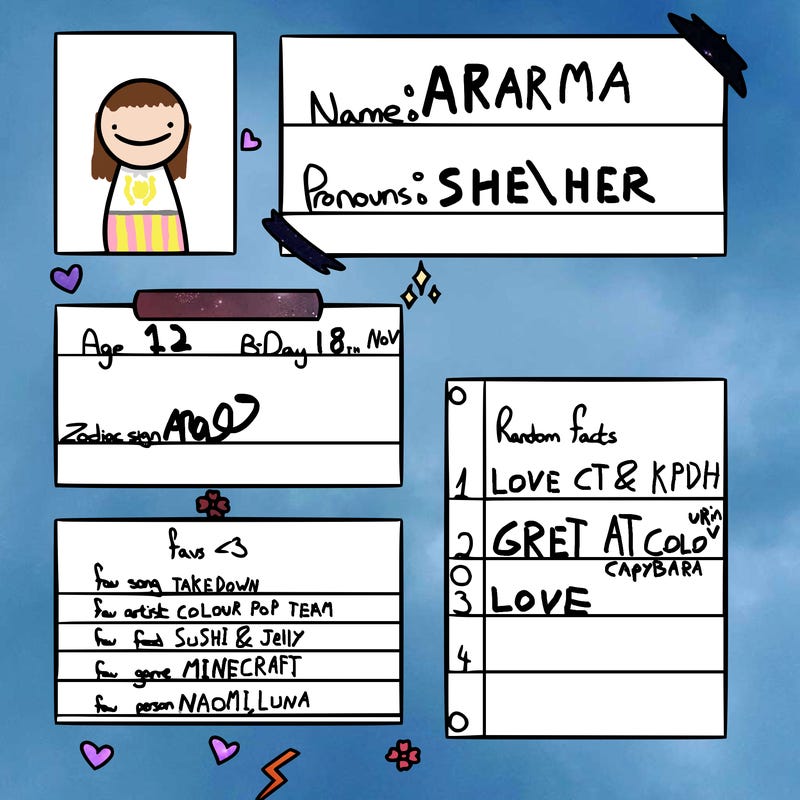 Name: ARARMA
Pronouns: SHE\HER
Age 12 B-Day 18TH NOV
Zodiac sign
favs <3
fav song TAKEDOWN
fav artist COLOUR POP TEAM
fav food SUSHI & Jelly
fav game MINECRAFT
fav person NAOMI, LUNA
Random facts
1 LOVE CT & KPDH
2 GRET AT COLOURIN
3 LOVE CAPYBARA
4